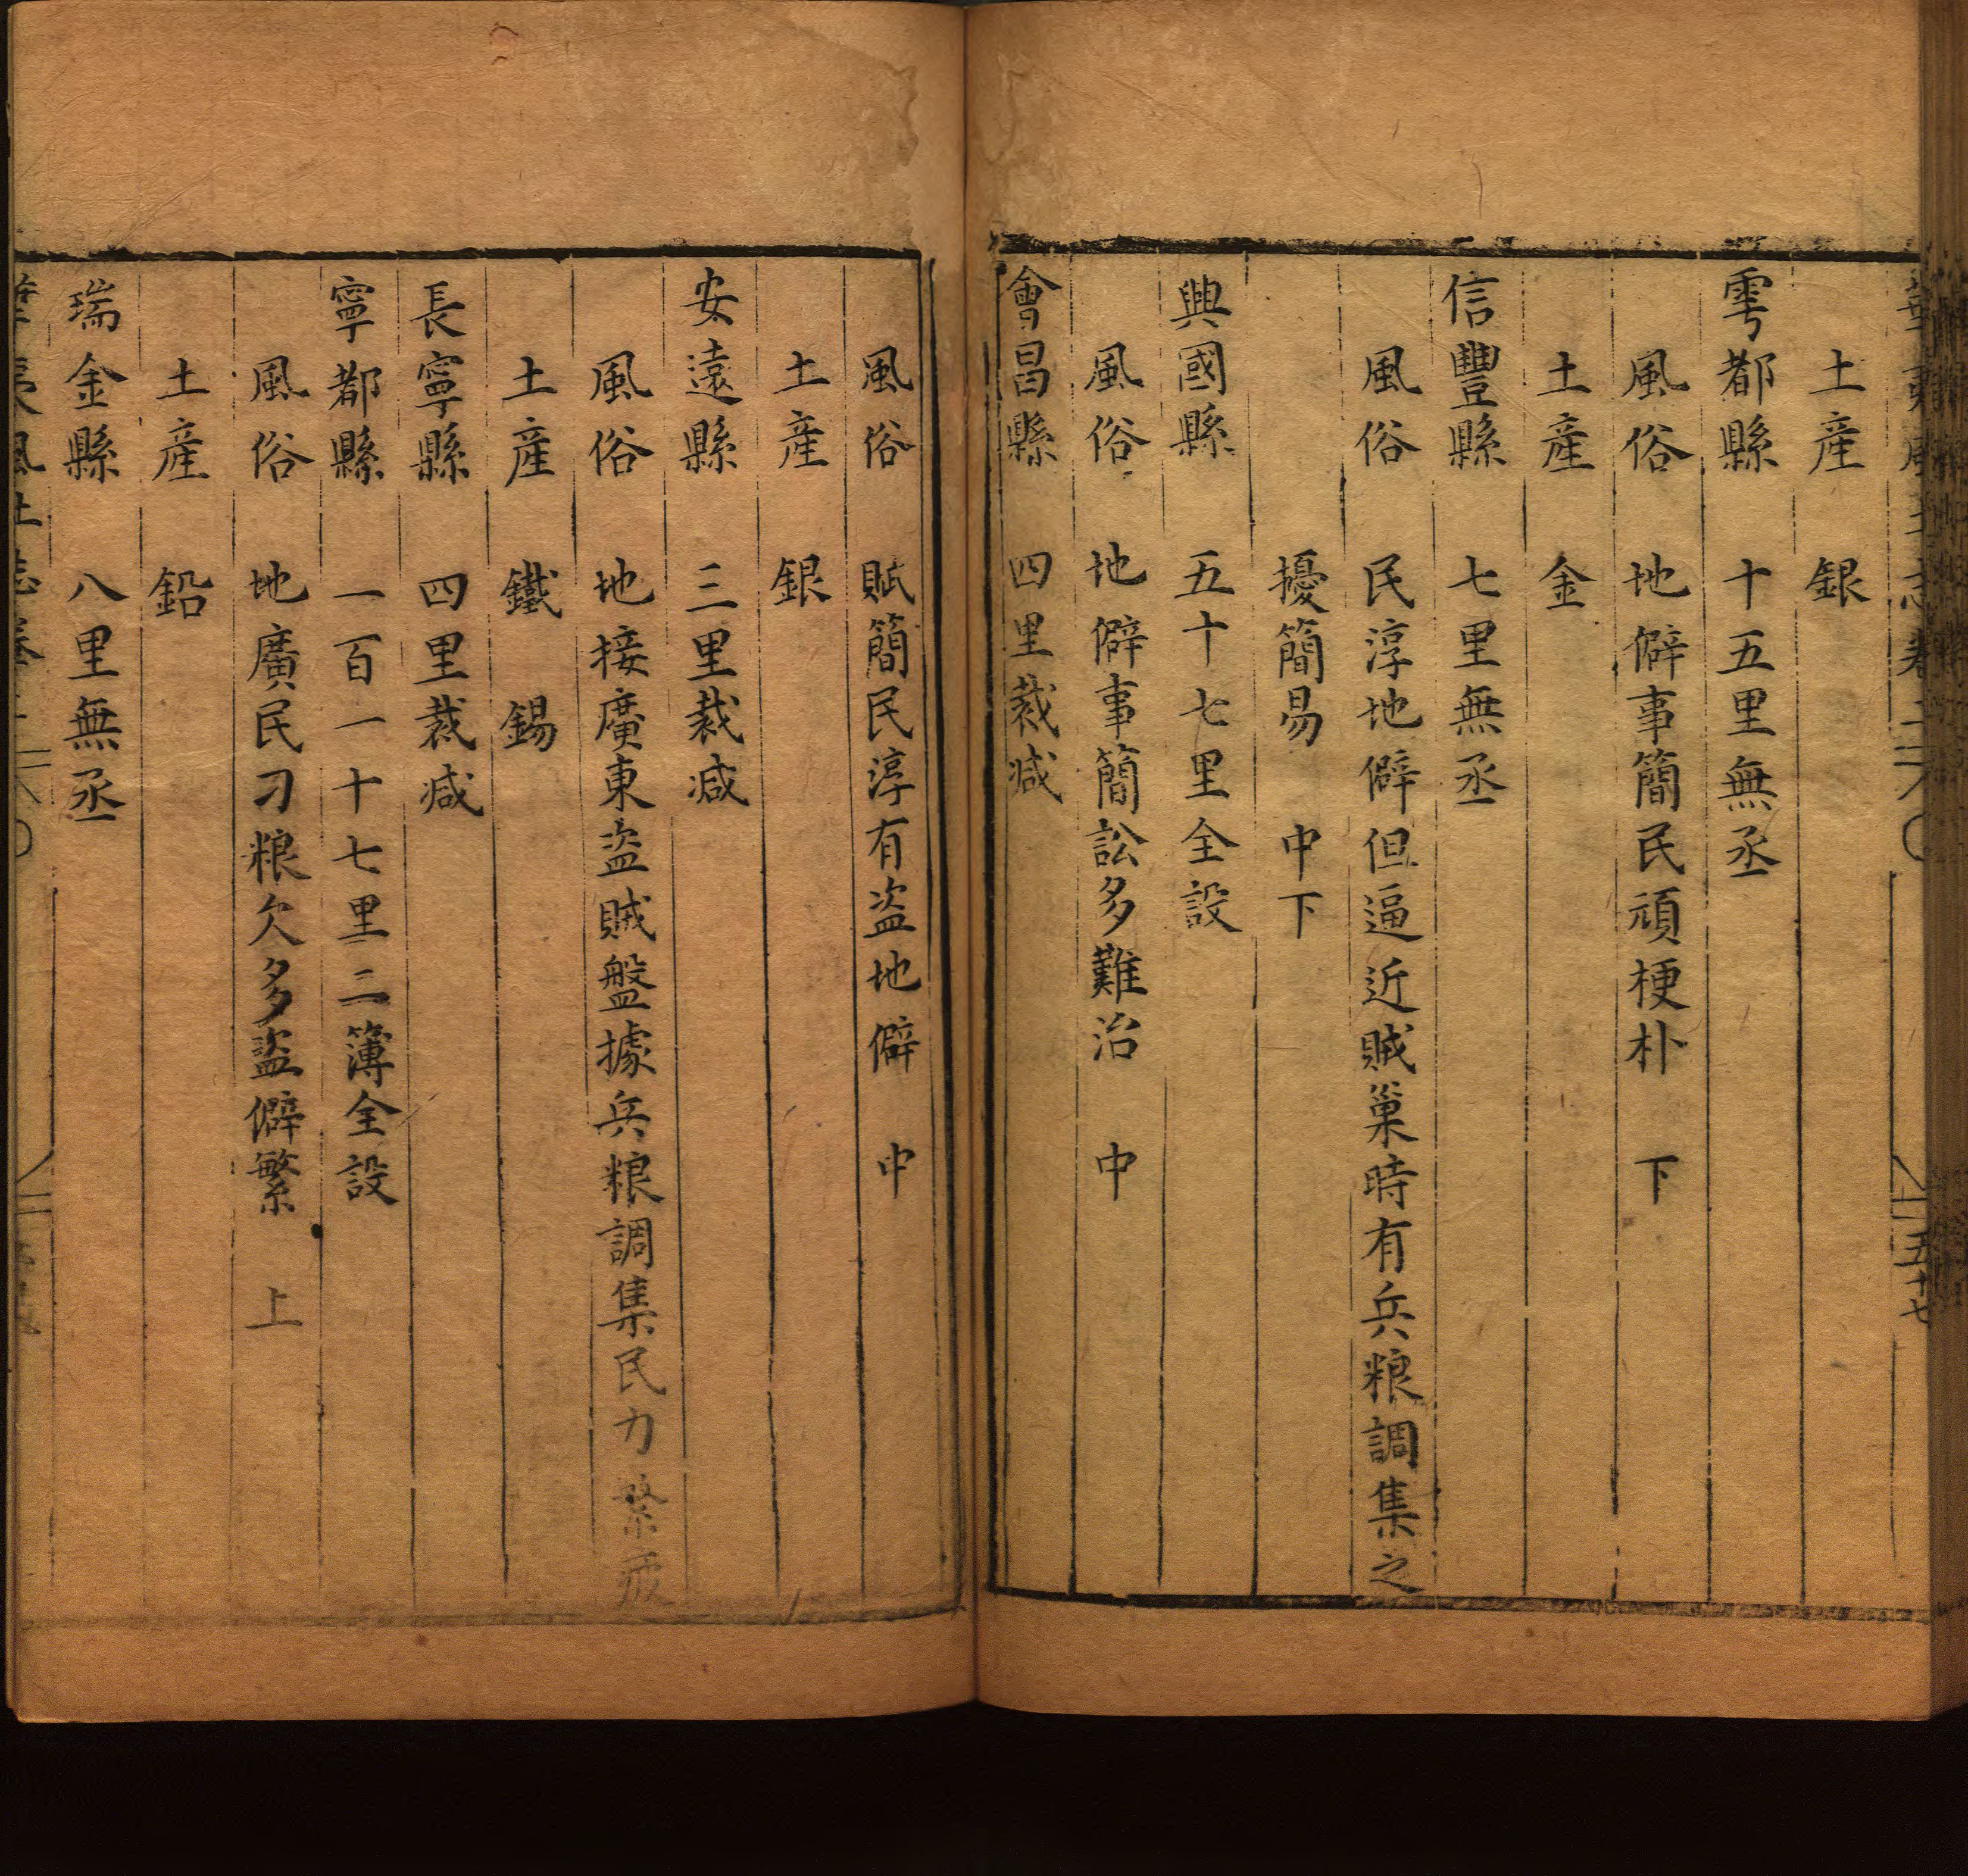 土産　銀
雩都縣　十五里無丞
風俗　地僻事簡民頑梗朴　下
土産　金
信豐縣　七里無丞
風俗　民淳地僻但逼近賊巢時有兵粮調集之
擾簡易　中下
興國縣　五十七里全設
風俗　地僻事簡訟多難治　中
會昌縣　四里裁减
風俗　賦簡民淳有盗地僻　中
土産　銀
安遠縣　三里裁减
風俗　地接廣東盗賊盤據兵粮調集民力繁疲
土産　鐵　錫
長寧縣　四里裁减
寧都縣　一百一十七里二簿全設
風俗　地廣民刁粮欠多盜僻繁　上
土産　鉛
瑞金縣　八里無丞